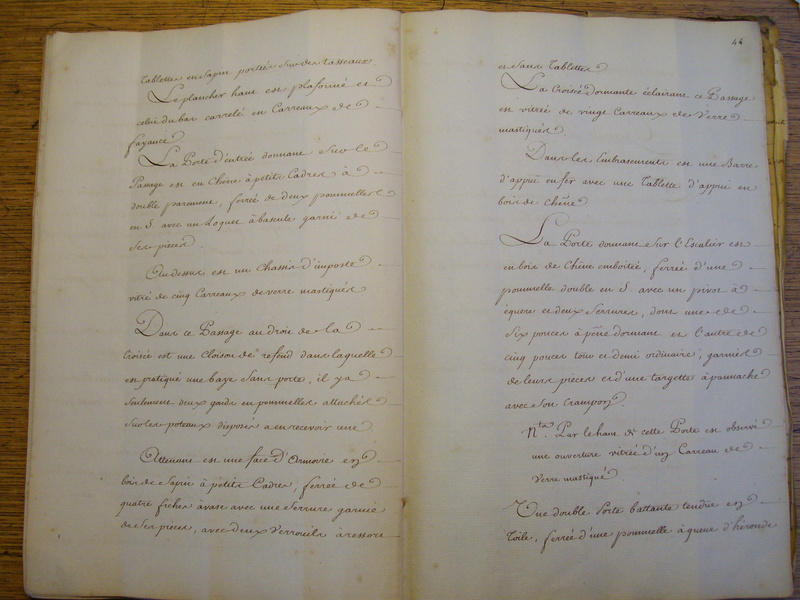 Tablettes en Sapin portées Sur des tasseaux
Le plancher haut est plafonné et
celui du bas carrelé en Carreaux de
fayance
La Porte d'entrée donnant Sur le
Passage est en Chêne à petits Cadres à
double parement, ferrée de deux poummelles
en S. avec un Loquet à bascule garni de
Ses pieces.
Au dessus est un Chassis d'imposte
vitré de cinq Carreaux de verre mastiqués
Dans ce Passage au droit de la
Croisée est une Cloison de refend dans laquelle
est pratiqué une baye Sans porte, il y a
Seulement deux gonds en poummelles attachés
Sur les poteaux disposés a en recevoir une
Attenant est une face d'Armoire en
bois de Sapin à petits Cadres, ferrée de
quatre fiches à vase avec une Serrure garnie
de Ses pieces, avec deux Verrouils à ressort
44
et Sans Tablettes
La Croisée dormante éclairant ce Passage
est vitrée de vingt Carreaux de Verre
mastiqués
Dans les Embrasements est une Barre
d'appui en fer avec une Tablette d'appui en
bois de Chêne
La Porte donnant Sur l'Escalier est
en bois de Chêne emboitée, ferrée d'une
poummelle double en S. avec un pivot à
équere et deux Serrures, dont une de
Six pouces à pêne dormant et l'autre de
cinq pouces tour et demi ordinaire, garnies
de leurs pieces et d'une targette à pannache
avec Son Crampon.
Nta. Par le haut de cette Porte est observé
une ouverture vitrée d'un Carreau de
Verre mastiqué
Une double Porte battante tendue en
Toile, ferrée d'une poummelle à queue d'hironde